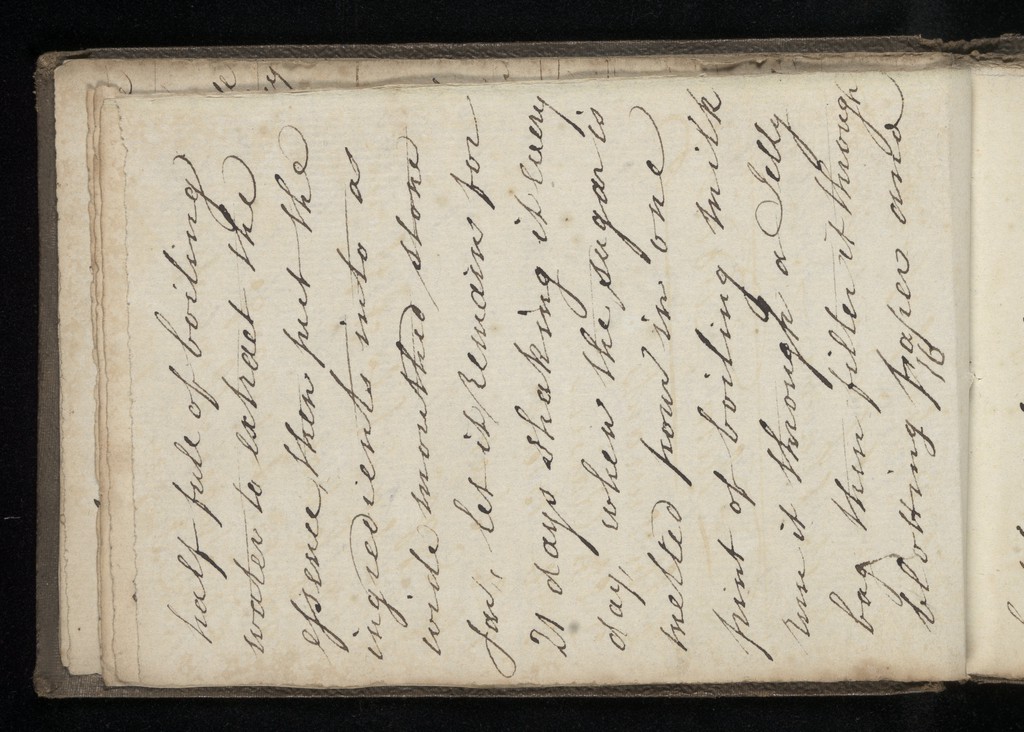 half full of boiling
water to extract the
Essence, then put the
ingredients into a
wide mouthed stone
Jar, let it remain for
21 days shaking it every
day, when the sugar is
melted pour in one
pint of boiling milk
run it through a Jelly
bag then filter it through
blotting paper and
16